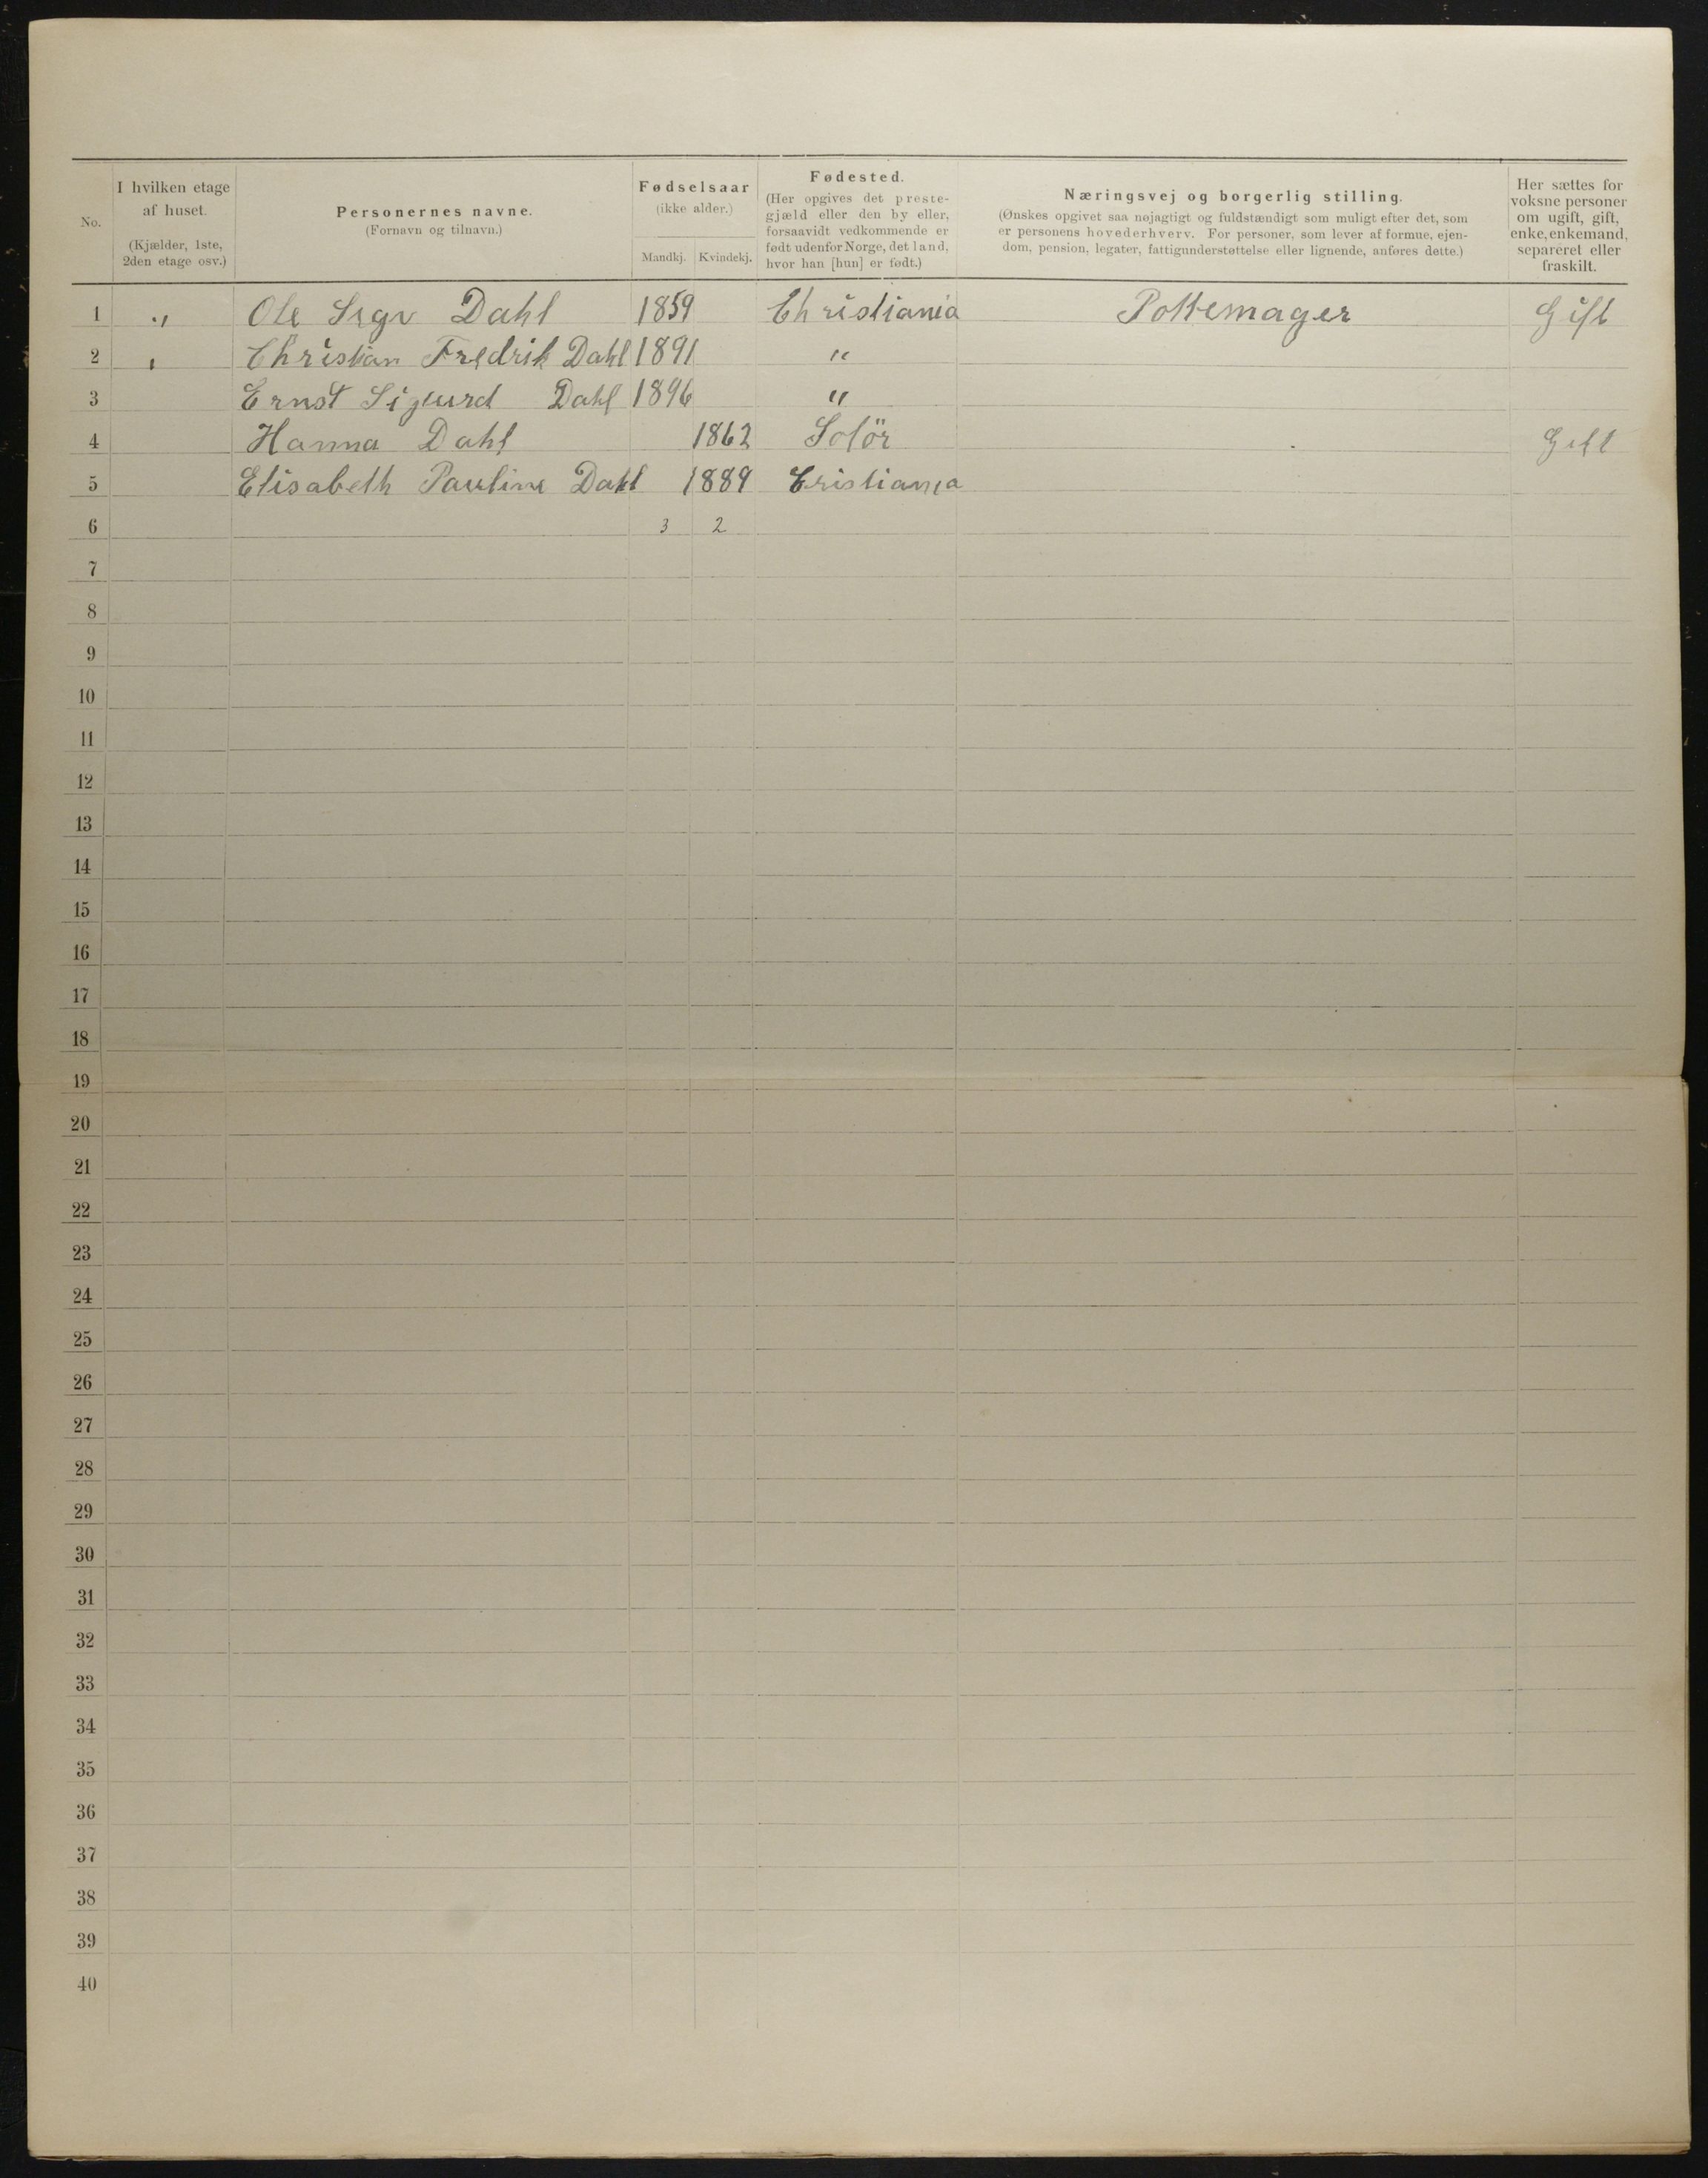 No.
I hvilken etage
af huset.
(Kjælder, 1ste,
2den etage osv.)
Personernes navne.
(Fornavn og tilnavn.)
Fødselsaar
(ikke alder.)
Mandkj. Kvindekj.
Fødested.
(Her opgives det preste-
gjæld eller den by eller,
forsaavidt vedkommende er
født udenfor Norge, det land,
hvor han [hun] er født.)
Næringsvej og borgerlig stilling.
(Ønskes opgivet saa nøjagtigt og fuldstændigt som muligt efter det, som
er personens hovederhverv. For personer, som lever af formue, ejen-
dom, pension, legater, fattigunderstøttelse eller lignende, anføres dette.)
Her sættes for
voksne personer
om ugift, gift,
enke, enkemand,
separeret eller
fraskilt.
1 " Ole Dahl 1859 Christiania Pottemager Gift
2 Christian Fredrik Dahl 1891 "
3 Ernst Sigurd Dahl 1896 "
4 Hanna Dahl 1862 Solör Gift
5 Elisabeth Pauline Dahl 1889 Cristiania
6 3 2
7
8
9
10
11
12
13
14
15
16
17
18
19
20
21
22
23
24
25
26
27
28
29
30
31
32
33
34
35
36
37
38
39
40